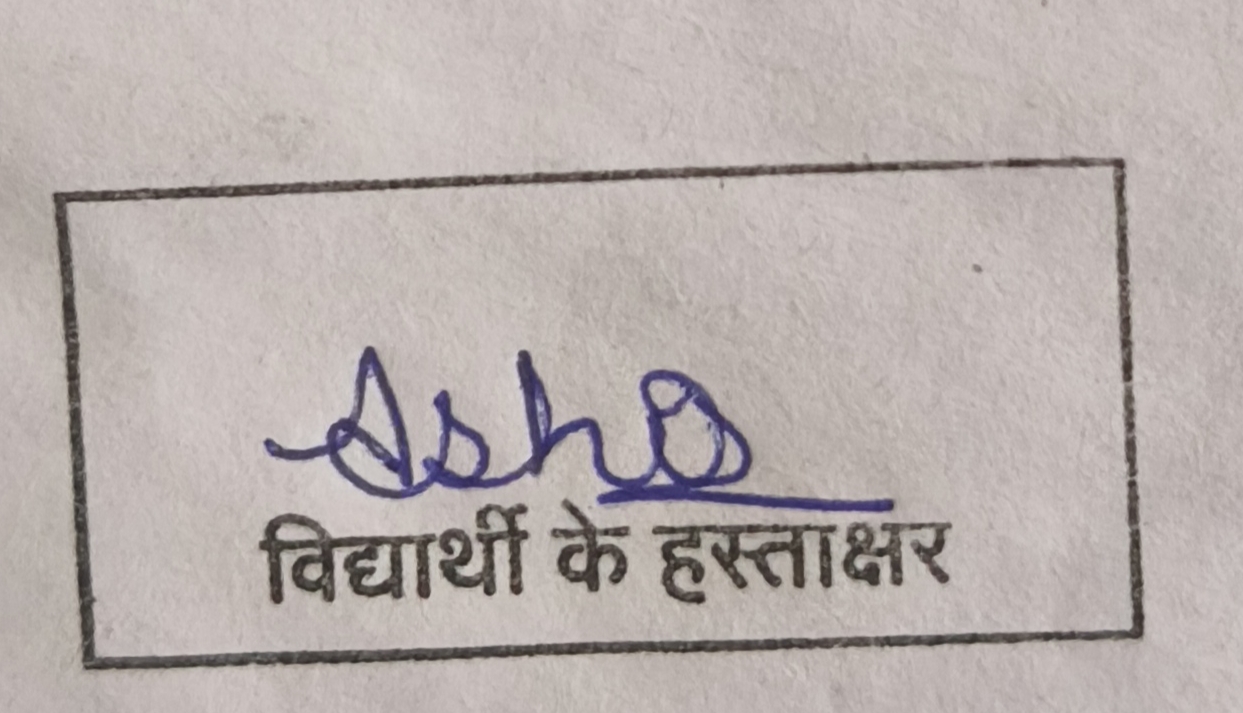 Asha
विद्यार्थी के हस्ताक्षर